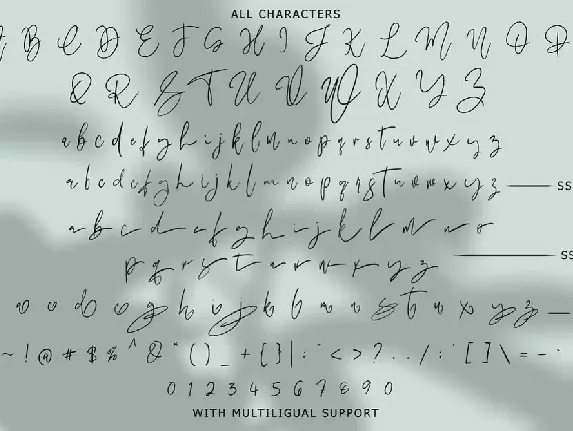 ALL CHARACTERS
A B C D E F G H I J K L M N O P
Q R S T U V W X Y Z
a b c d e f g h i j k l m n o p q r s t u v w x y z
a b c d e f g h i j k l m n o p q r s t u v w x y z SS
a b c d e f g h i j k l m n o
p q r s t u v w x y z SS
~ ! @ # $ % ^ & * ( ) _ + { } | : " < > ? . . / ; ' [ ] \ = - `
0 1 2 3 4 5 6 7 8 9 0
WITH MULTILIGUAL SUPPORT